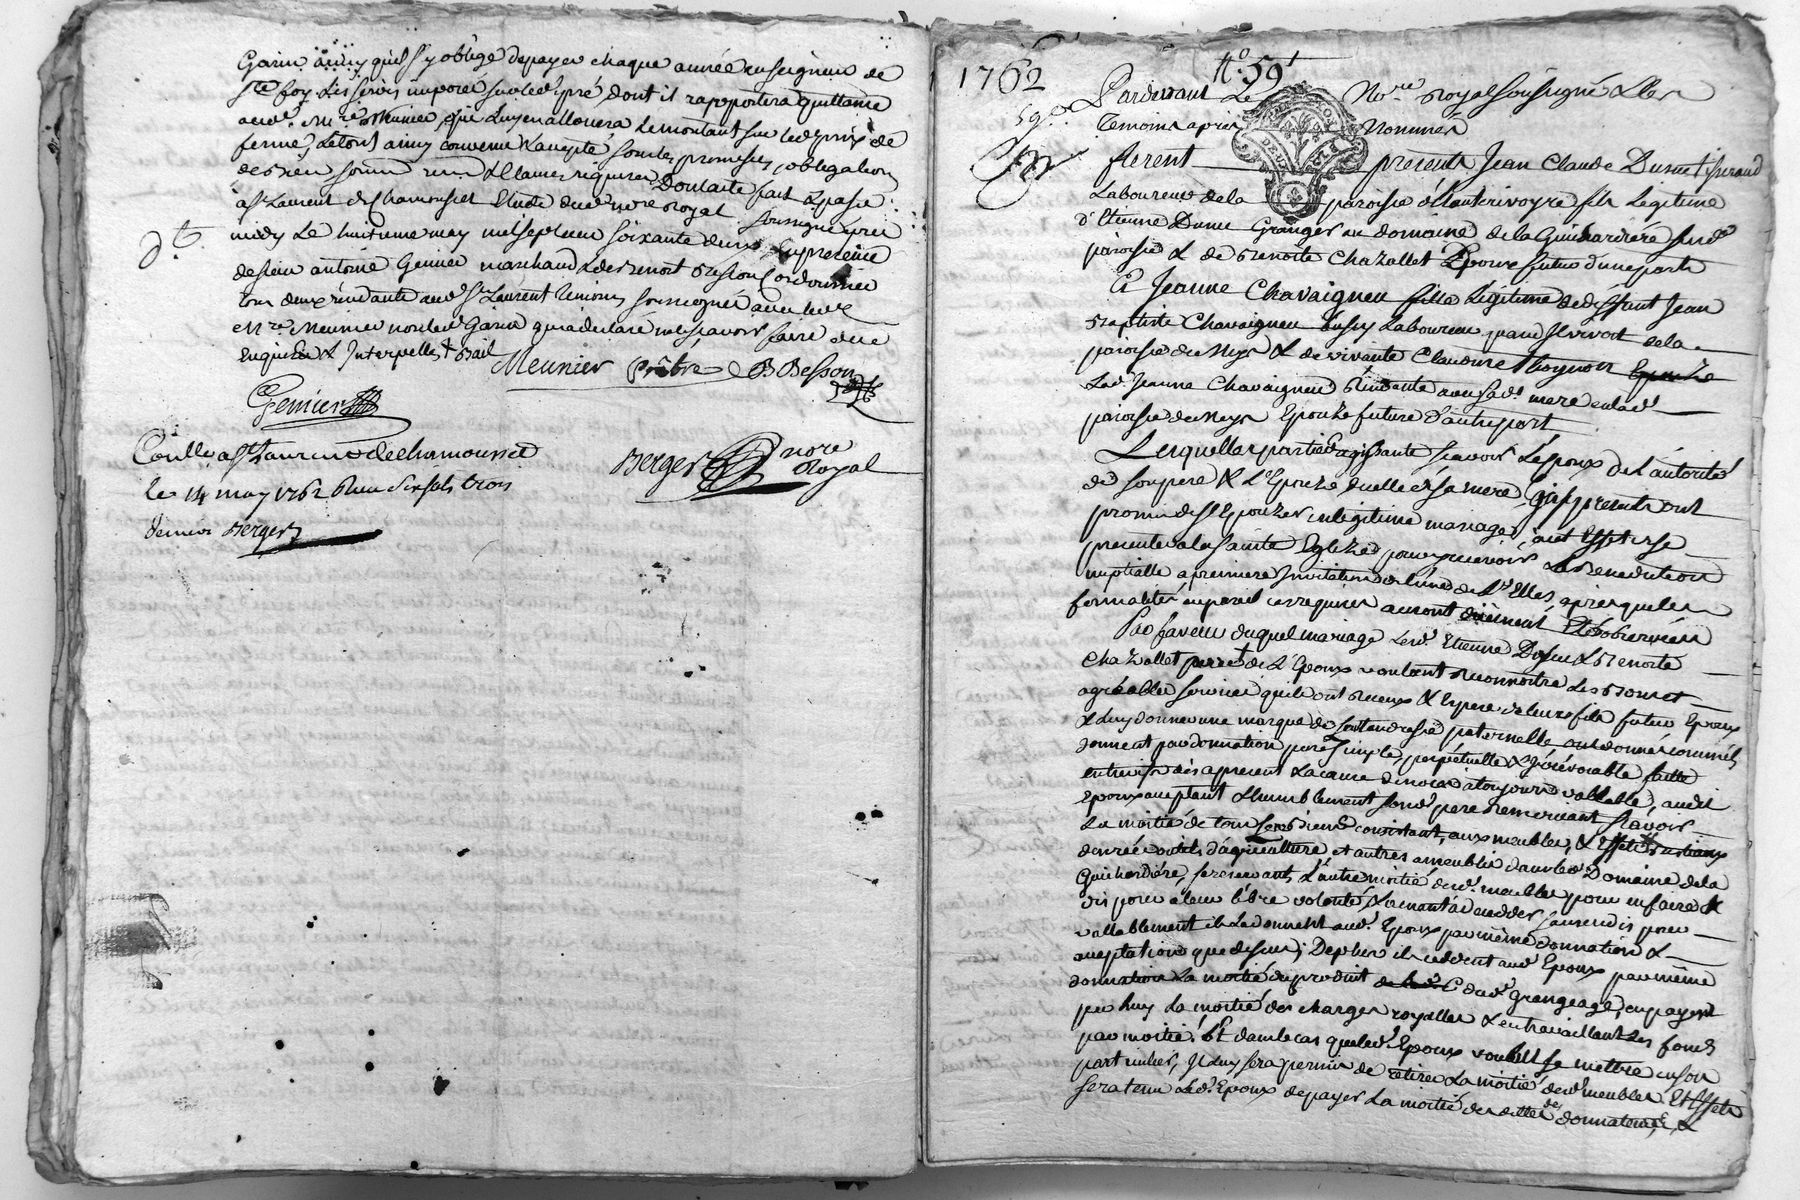 Garin ainsy quil s'y oblige de payer chaque année au seigneur de
Ste foy les servis imposés sur led. pré, dont il rapportera quittance
aud. Mre Meunier, qui luy en allouera le montant sur led. prix de
ferme, Le tout ainsy convenu & accepté sous les promesses, obligation
de biens & clauses requises Dont acte fait & passé
a St Laurent de Chamousset Etude du notre Royal soussigné
midy Le huitieme may mil sept cent soixante deux En presence
de sieur antoine Genier marchand & de Benoit Besson Cordonnier
tous deux residants aud. St Laurent temoins soussignés avec led.
Mre Meunier non led. Garin qui a declaré ne sçavoir faire de ce
Enquis & Interpellé + bail
d.t
Meunier prêtre B Besson
Genier
Conllé a St Laurent de chamousset
le 14 may 1762 Reçu six sols trois
deniers Berger
Berger nore
Royal
1762
No. 59
Pardevant Le Nore. royal soussigné & les
Temoins apres Nommés
furent presents Jean Claude Dumas tisserand
Laboureur de la paroisse d'hauterivoyre fils Legitime
d'Etienne Dumas Granger au domaine de la Guichardière sus de
paroisse & de Benoite Chazallet Epoux futur d'une part
Et Jeanne Chavaigneu fille légitime de deffunt Jean
Baptiste Chavaigneu aussy Laboureur quand il vivoit de la
paroisse de Meys & de vivante Claudine thognon Epouze
Lad. Jeanne Chavaigneu residante avec sad. mere en lad.
paroisse de Meys Epouze future d'autre part
Lesquelles parties agissants sçavoir L'époux de l'autorité
de son pere & L'Epouze de celle de sa mere cy presents ont
promis de s'Epouzer en legitime mariage, a cet Effet se
presenter a la sainte Eglize, pour y recevoir La Benediction
nuptialle a premiere Invitation de L'une de Parties, apres que les
formalités en pareil cas requises auront duement Eté observées
En faveur duquel mariage Led. Etienne Dumas & Benoite
Chazallet pere & mere de L'Epoux voulant reconnoitre Les Bons et
agréables services qu'ils ont receus & Esperent de leurs fils futur Epoux
& luy donner une marque de leur tendresse paternelle ont donné comme ils
donnent par donnation pure simple, perpétuelle & irrévocable faitte
entre vifs dès apresent & a cause de noces a toujours vallable, audit
Epoux acceptant & humblement sond. pere remerciant sçavoir
La moitié de tous ses biens consistant, aux meubles, & Effets Bestiaux
denrées outils d'agriculture et autres ameublés dans led. Domaine de la
Guichardière, se reservants L'autre moitié desd. meubles pour en faire &
disposer a leur libre volonté,
vallablement ils La donnent aud. Epoux par même donnation &
acceptation que dessus; De plus ils cedent aud. Epoux par même
donnation La moitié du produit dud. grangeage, en payant
par luy la moitié des charges royalles & en travaillant Les fonds
par moitié. Et dans le cas que led. Epoux voulut se mettre en son
particulier, Il luy sera permis de retirer La moitié desd. meubles Et Effets
sera tenu Led. Epoux de payer La moitié des dettes des donnateurs, &